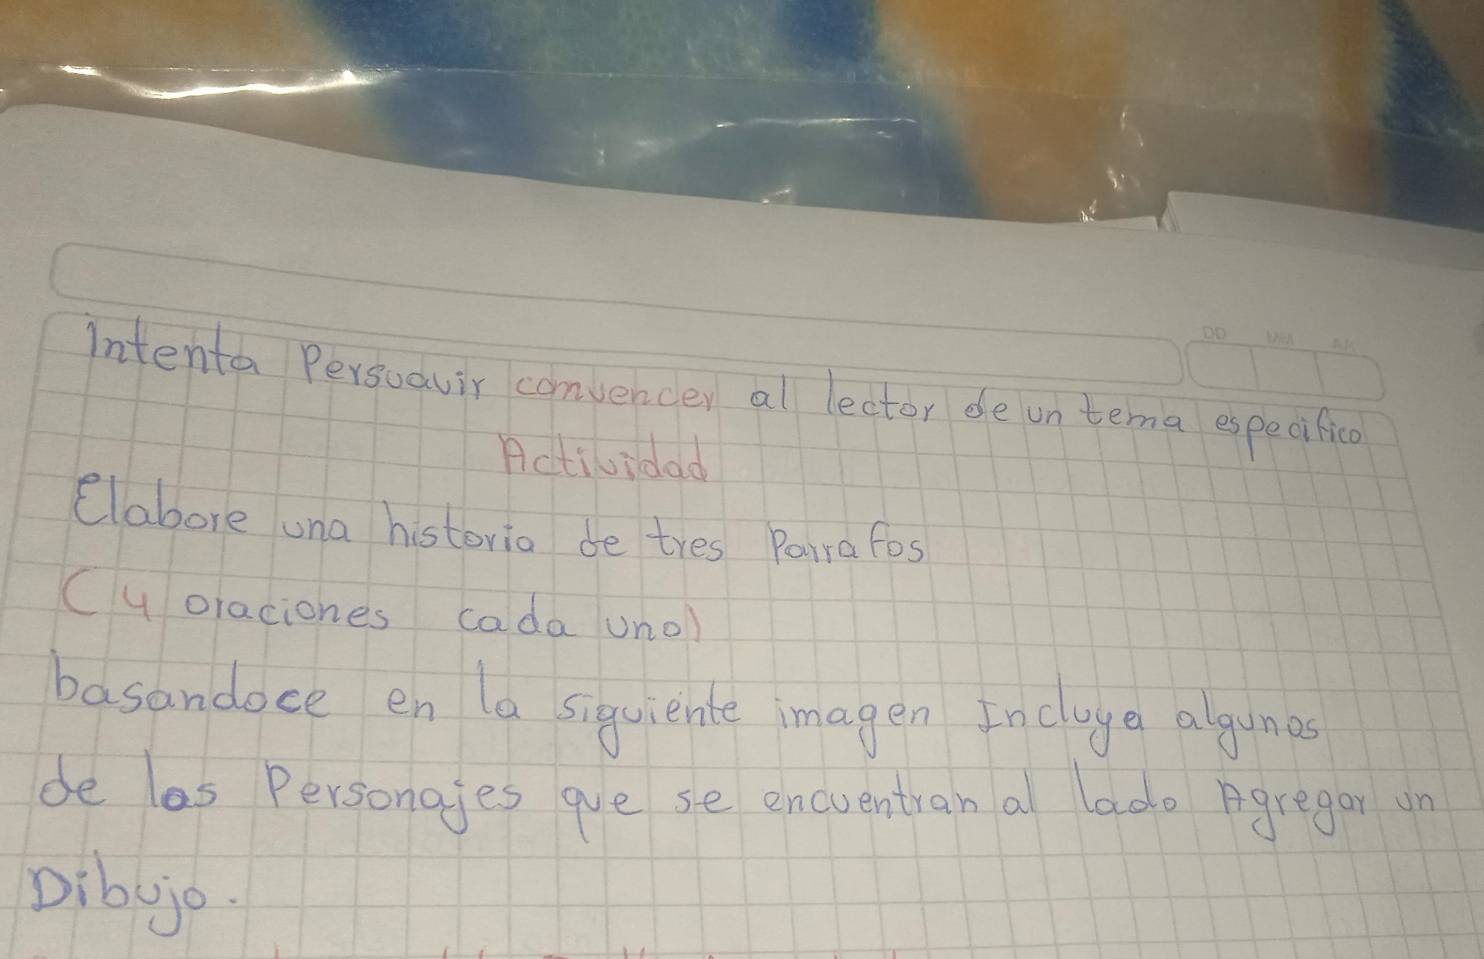 Intenta Persuavir comvencer al lector de un tema especifico
DD MM AA
Actividad
Elabore una historia de tres Parrafos
(4 oraciones cada uno)
basandoce en la siguiente imagen Incluya algunos
de los Personajes que se encuentran al lado Agregar un
Dibujo.